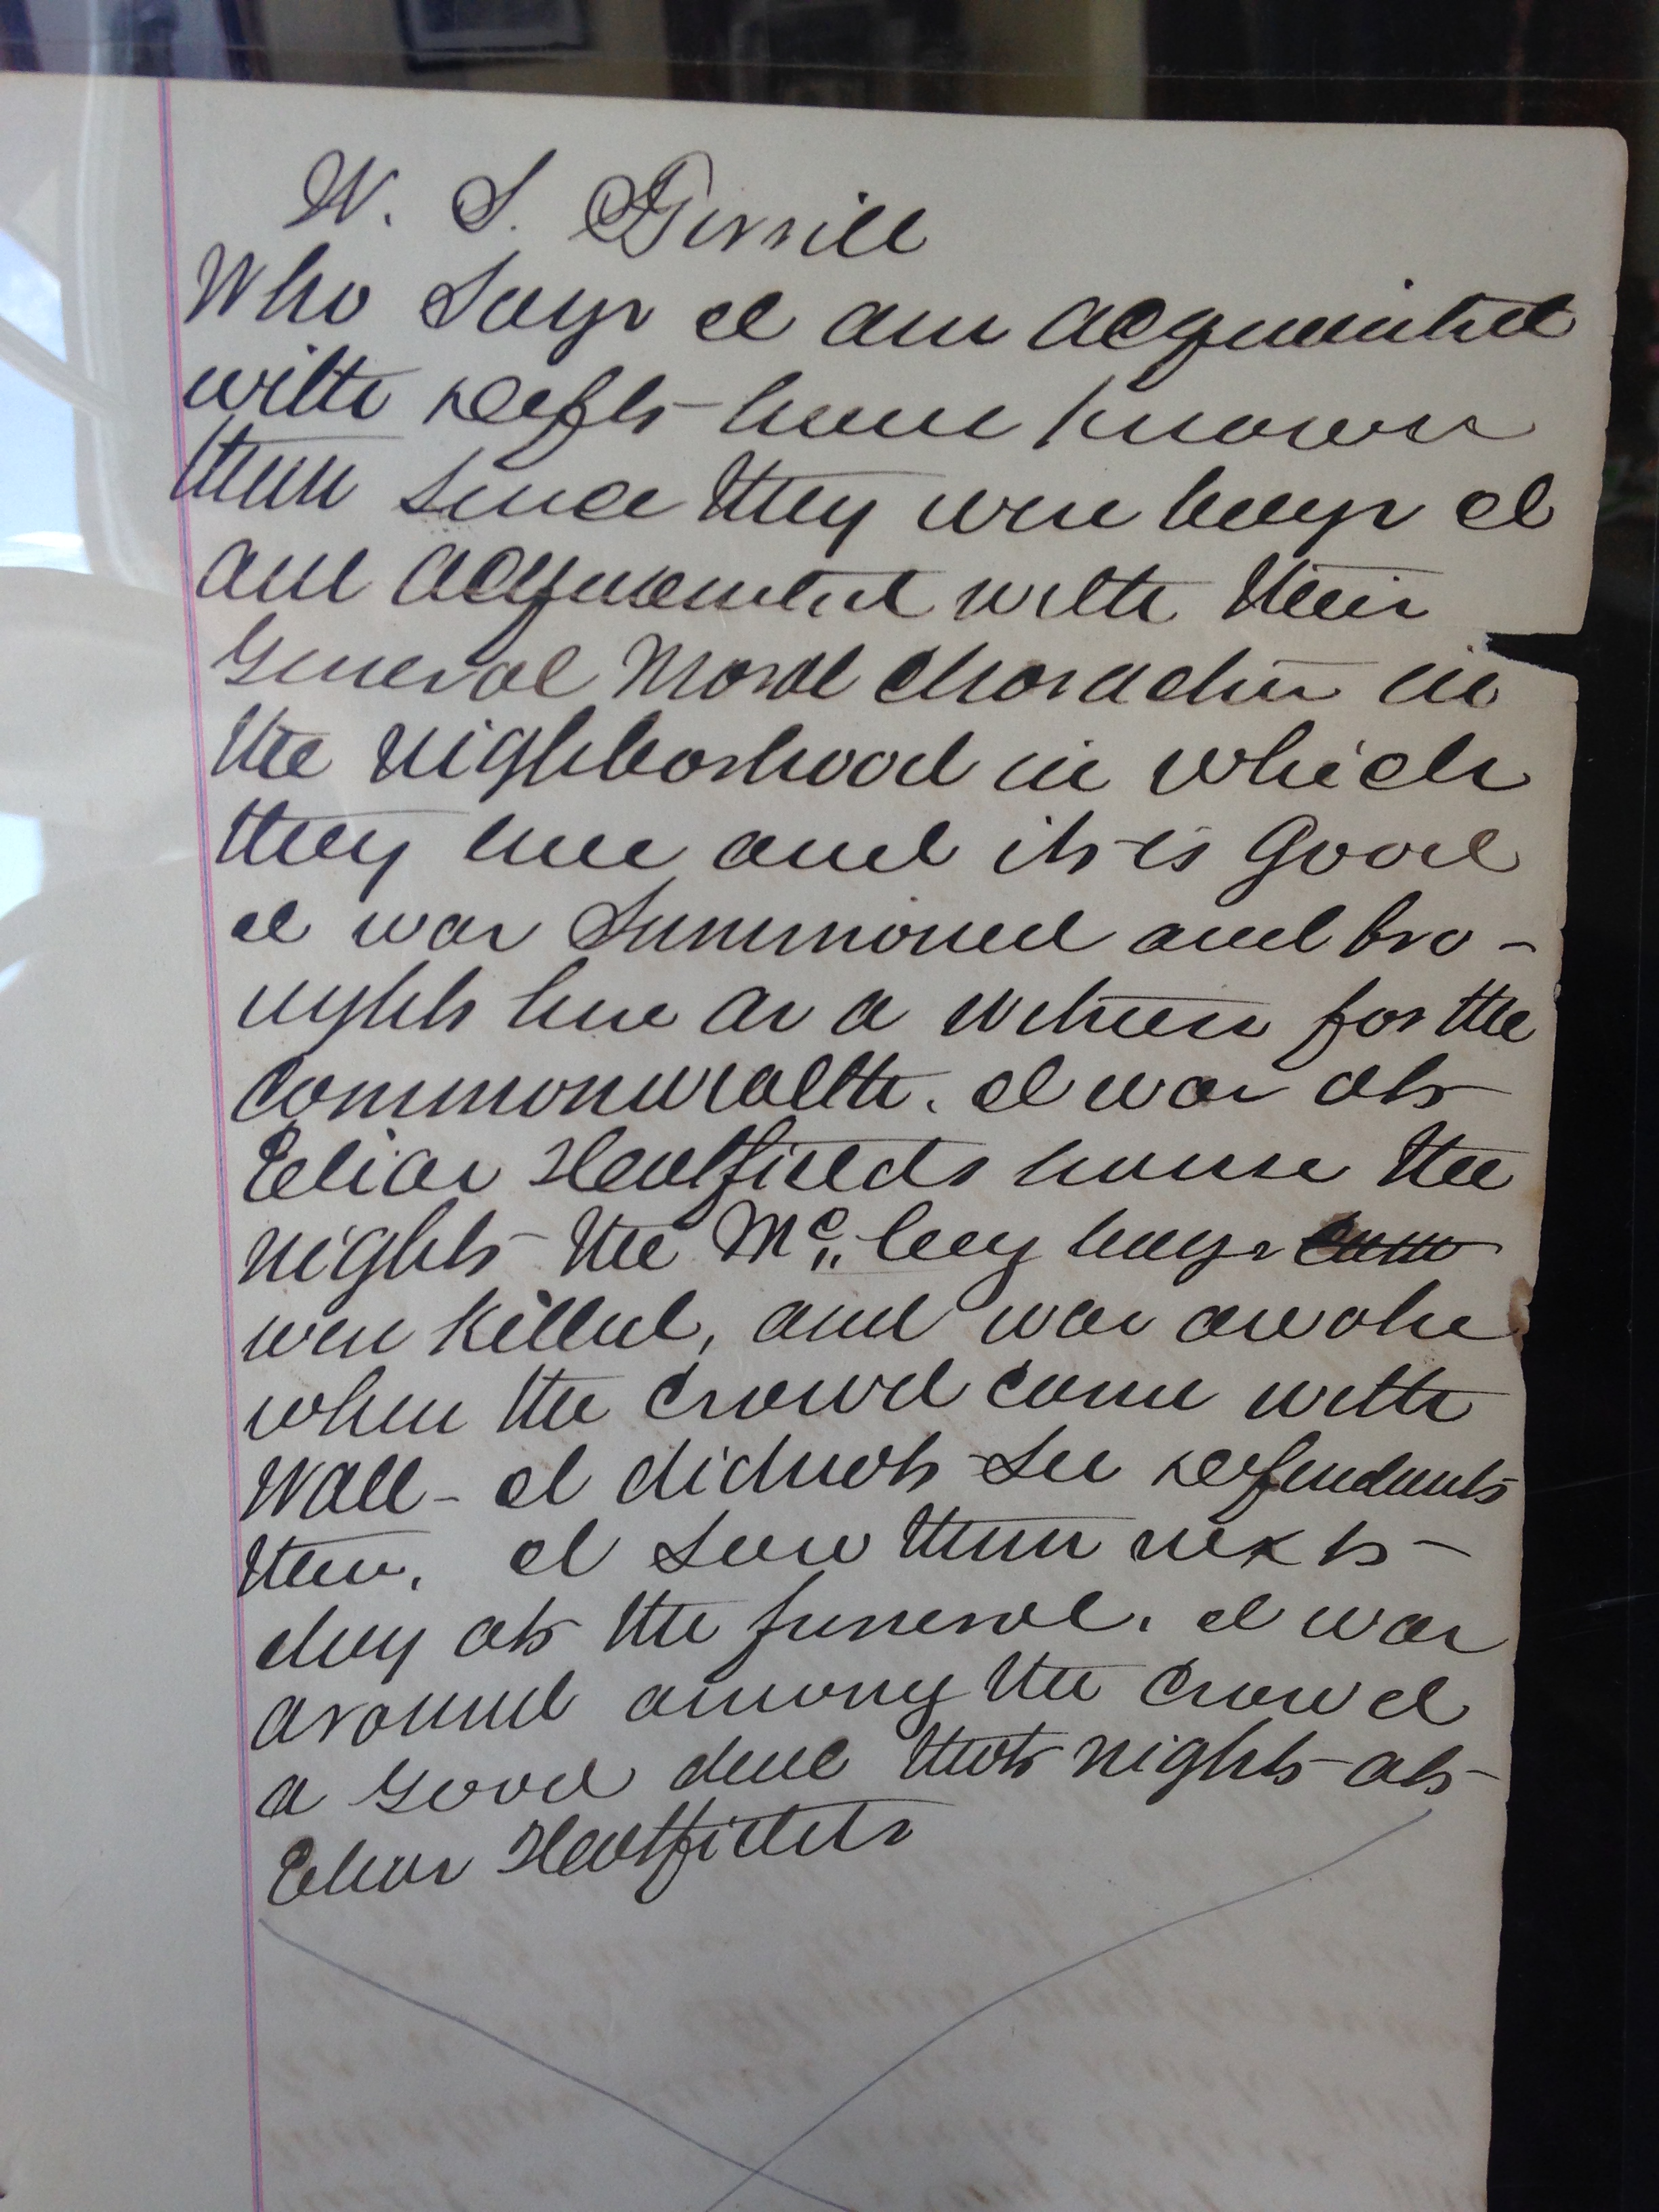 W. S. Ferrill
Who Says I am acquainted
with Defts have known
them since they were boys I
am acquainted with their
General Moral Character in
the nighborhood in which
they live and it is Good
I was Summoned and bro-
ught here as a witness for the
Commonwealth. I was at
Elias Hatfields house the
night the McCoy boys
were killed, and was awoke
when the crowd came with
Wall - I did not see defendants
then. I saw them next
day at the funeral. I was
around among the crowd
a good deal that night at
Elias Hatfields